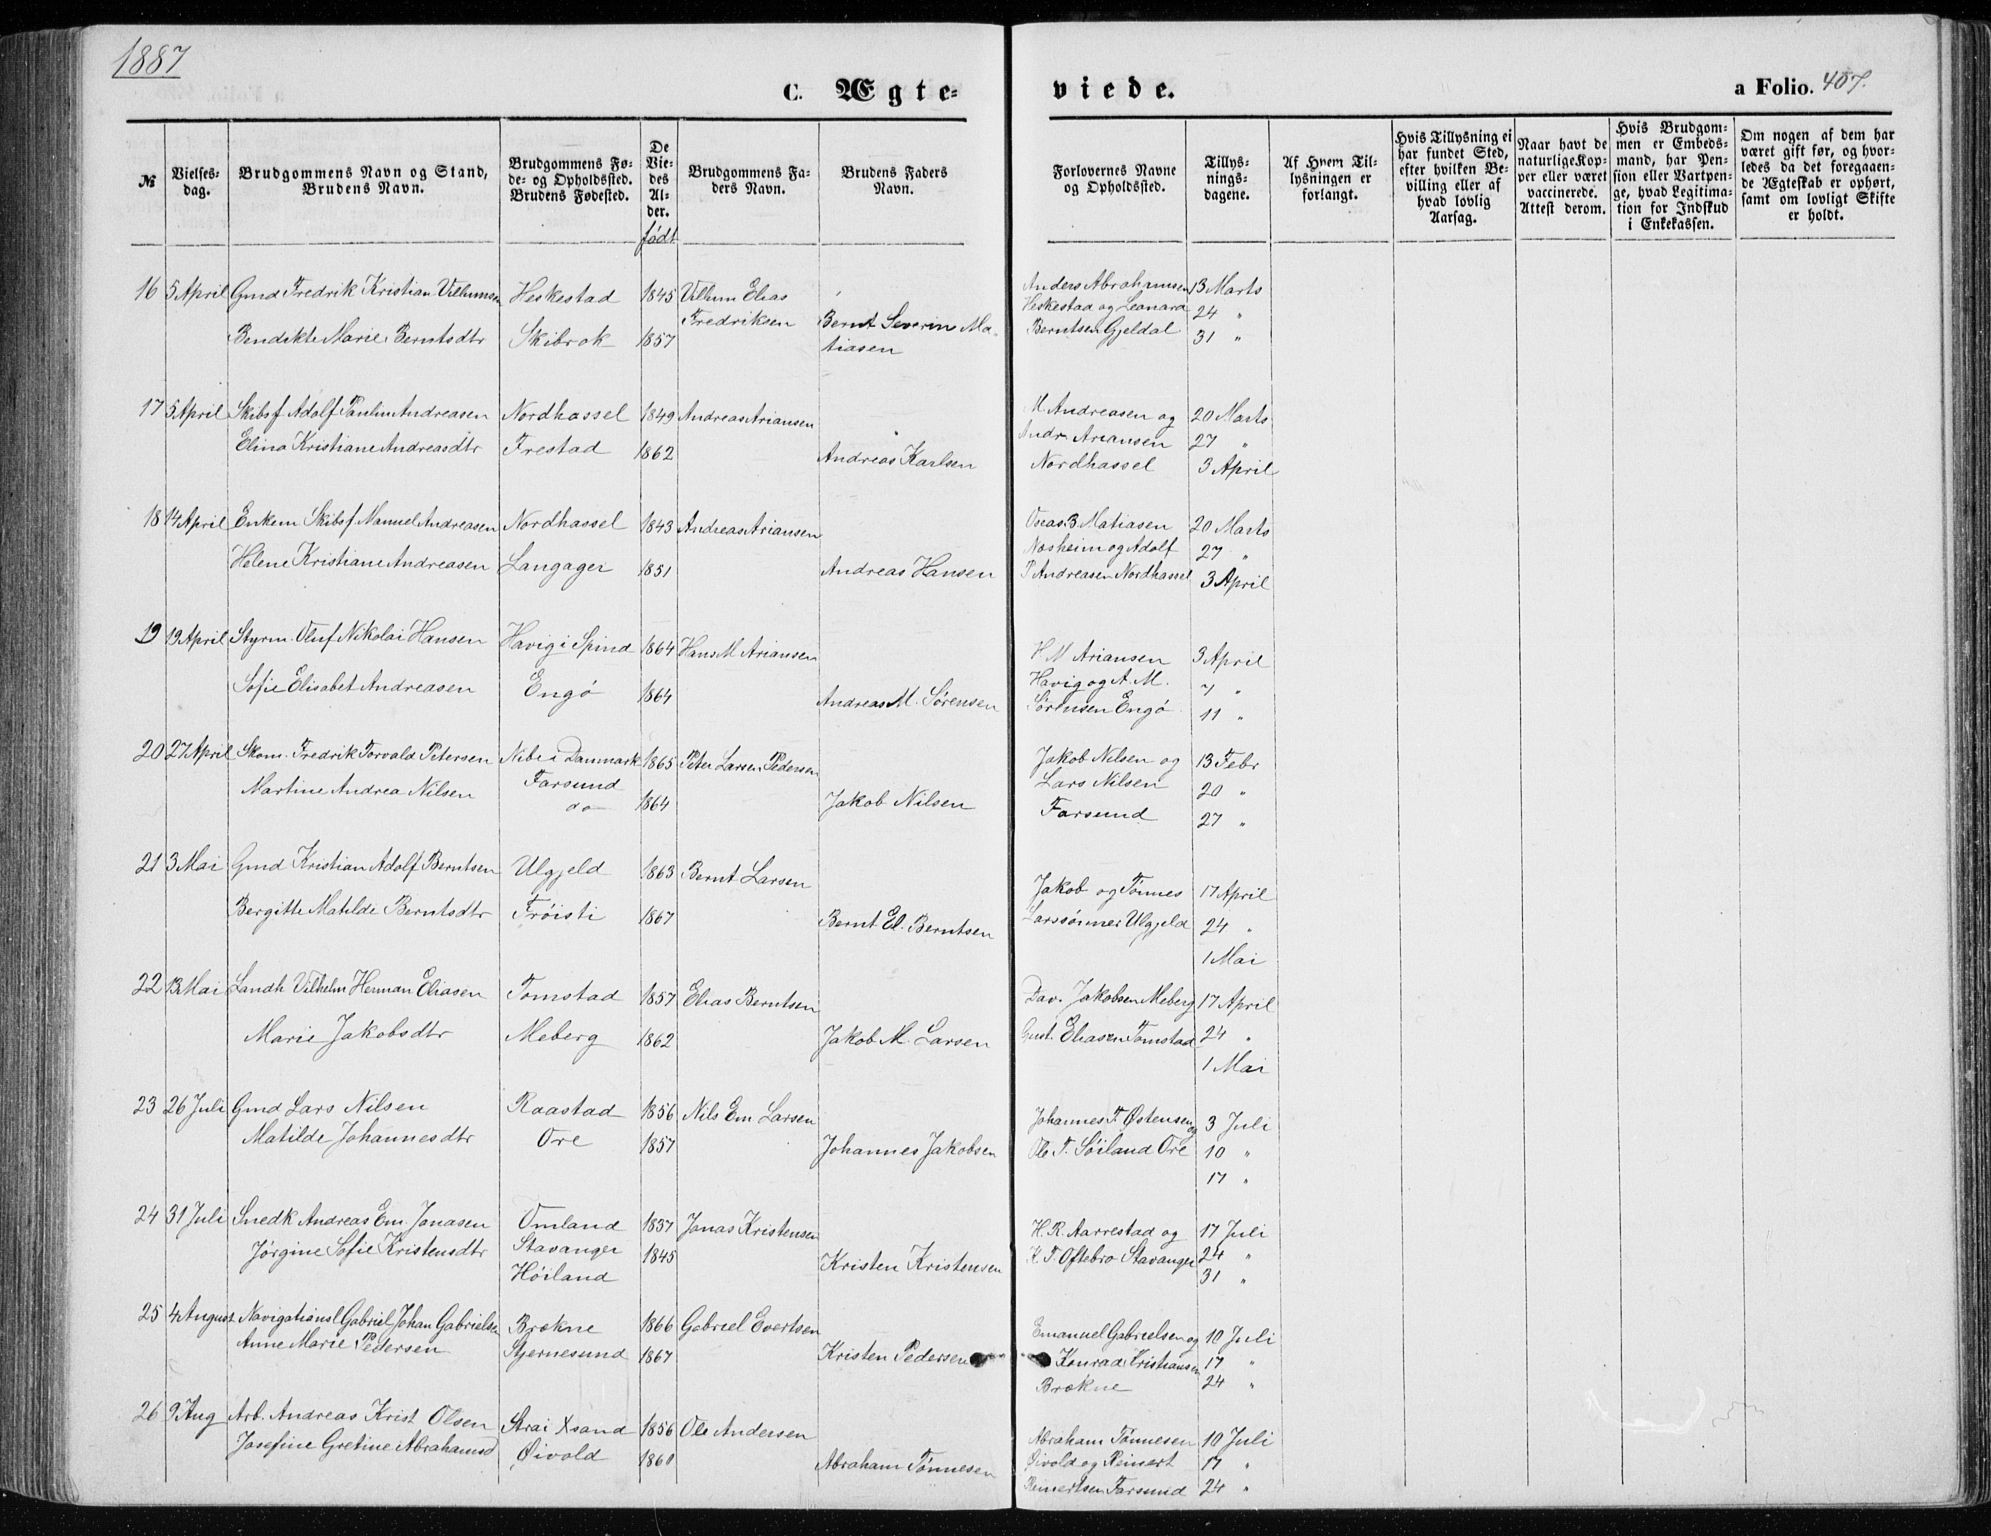 1887
C. Ægte-
viede.
a Folio. 407.
№
Vielses-
dag.
Brudgommens Navn og Stand,
Brudens Navn.
Brudgommens Fø-
de- og Opholdssted.
Brudens Fødested.
De
Vie-
des
Al-
der.
født
Brudgommens Fa-
ders Navn.
Brudens Faders
Navn.
Forlovernes Navne
og Opholdssted.
Tillys-
nings-
dagene.
Af Hvem Til-
lysningen er
forlangt.
Hvis Tillysning ei
har fundet Sted,
efter hvilken Be-
villing eller af
hvad lovlig
Aarsag.
Naar havt de
naturlige Kop-
per eller været
vaccinerede.
Attest derom.
Hvis Brudgom-
men er Embeds-
mand, har Pen-
sion eller Vartpen-
ge, hvad Legitima-
tion for Indskud
i Enkekassen.
Om nogen af dem har
været gift før, og hvor-
ledes da det foregaaen-
de Ægteskab er ophørt,
samt om lovligt Skifte
er holdt.
16 5 April Gmd Fredrik Kristian Vilhumsen Heskestad 1845 Vilhum Elias Anders Abrahamsen 13 Marts
Fredriksen Heskestad og Leonard 24 "
Bendikte Marie Berntsdtr Skibrok 1857 Bernt Severin Ma- Berntsen Gjeldal 31 "
tiasen
17 5 April Skibsf Adolf Paulin Andreasen Nordhassel 1849 Andreas Ariansen M. Andreasen og 20 Marts
Elina Kristiane Andreasdtr Frestad 1862 Andreas Karlsen Andr. Ariansen 27 "
Nordhassel 3 April
18 14 April Enkem Skibsf Manuel Andreasen Nordhassel 1843 Andreas Ariansen Oseas B Matiasen 20 Marts
Helene Kristiane Andreasen Langager 1851 Andreas Hansen Nosheim og Adolf 27 "
P Andreasen Nordhassel 3 April
19 19 April Styrm. Oluf Nikolai Hansen Havig i Spind 1864 Hans M Ariansen H M Ariansen 3 April
Sofie Elisabet Andreasen Engö 1864 Andreas M. Sørensen Havig og A. M. 7 "
Sørensen Engö 11 "
20 27 April Skom. Fredrik Torvald Petersen Nibe i Danmark 1865 Peter Larsen Pedersen Jakob Nilsen og 13 Febr
Farsund Lars Nilsen 20 "
Martine Andrea Nilsen do 1864 Jakob Nilsen Farsund 27 "
21 3 Mai Gmd Kristian Adolf Berntsen Ulgjeld 1863 Bernt Larsen Jakob og Tönnes 17 April
Bergitte Matilde Berntsdtr Tröisti 1867 Bernt El. Berntsen Larssönner Ulgjeld 24 "
1 Mai
22 13 Mai Landh Vilhelm Herman Eliasen Tomstad 1857 Elias Berntsen Dav. Jakobsen Meberg 17 April
Marie Jakobsdtr Meberg 1862 Jakob M. Larsen Gust. Eliasen Tomstad 24 "
1 Mai
23 26 Juli Gmd Lars Nilsen Raastad 1856 Nils Em Larsen Johannes T. Østensen og 3 Juli
Matilde Johannesdtr Ore 1857 Johannes Jakobsen Ole T. Söiland Ore 10 "
17 "
24 31 Juli Snedk Andreas Em. Jonasen Omland 1837 Jonas Kristensen H. R. Aarrestad og 17 Juli
Stavanger
Jörgine Sofie Kristensdtr Höiland 1845 Kristen Kristensen K. T. Oftebro Stavanger 24 "
31 "
25 4 August Navigationsl Gabriel Johan Gabrielsen Brekne 1866 Gabriel Evertsen Emanuel Gabrielsen og 10 Juli
Anne Marie Pedersen Stjernesund 1867 Kristen Pedersen Konrad Kristiansen 17 "
Brekne 24 "
26 9 Aug Arb. Andreas Krist Olsen Strai Xsand 1856 Ole Andersen Abraham Tönnesen 10 Juli
Josefine Gretine Abrahamsd Øivold 1860 Abraham Tönnesen Øivold og Reinert 17 "
Reinertsen Farsund 24 "